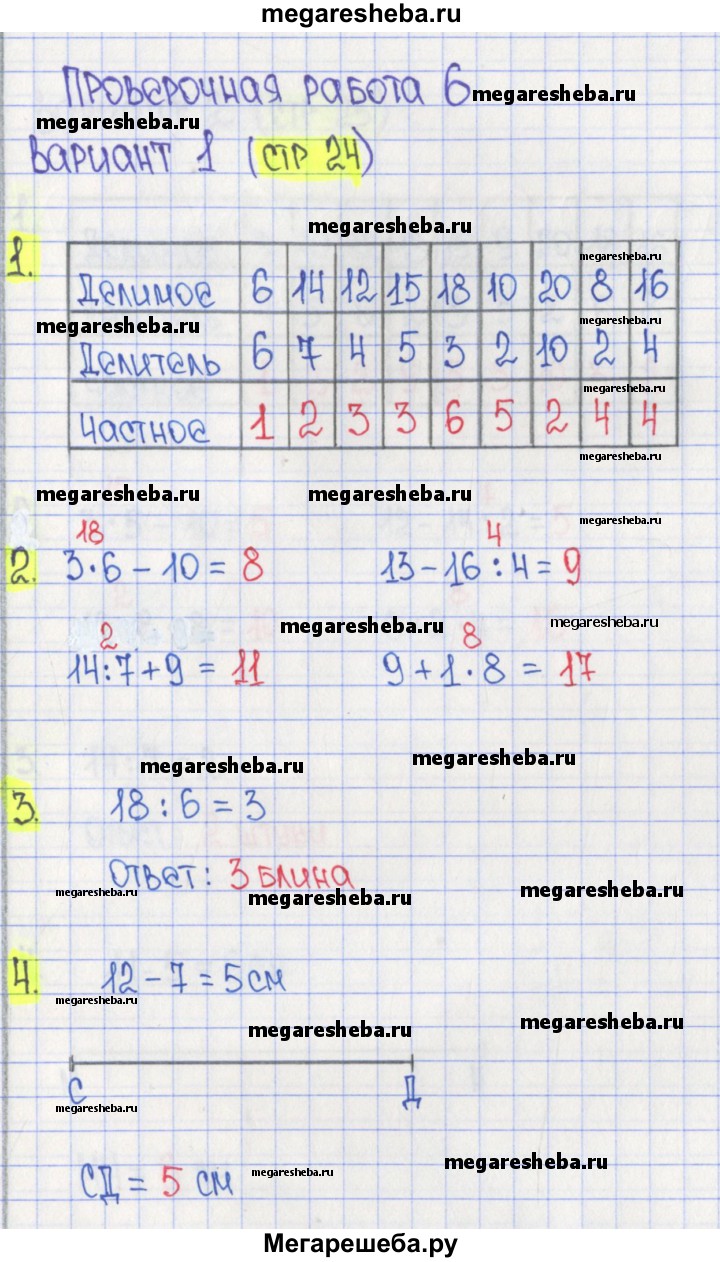 megaresheba.ru
Проверочная работа 6
megaresheba.ru
megaresheba.ru
Вариант 1 (стр 24)
megaresheba.ru
1.
megaresheba.ru
Делимое 6 14 12 15 18 10 20 8 16
megaresheba.ru
megaresheba.ru
Делитель 6 7 4 5 3 2 10 2 4
megaresheba.ru
Частное 1 2 3 3 6 5 2 4 4
megaresheba.ru
megaresheba.ru
megaresheba.ru
megaresheba.ru
18
4
2. 3·6 – 10 = 8
13 – 16 : 4 = 9
megaresheba.ru
megaresheba.ru
2
8
14:7 + 9 = 11
9 + 1·8 = 17
megaresheba.ru
megaresheba.ru
3. 18 : 6 = 3
Ответ: 3 блина
megaresheba.ru
megaresheba.ru
megaresheba.ru
4. 12 – 7 = 5 см
megaresheba.ru
megaresheba.ru
megaresheba.ru
С Д
megaresheba.ru
megaresheba.ru
СД = 5 см
megaresheba.ru
Мегарешеба.ру